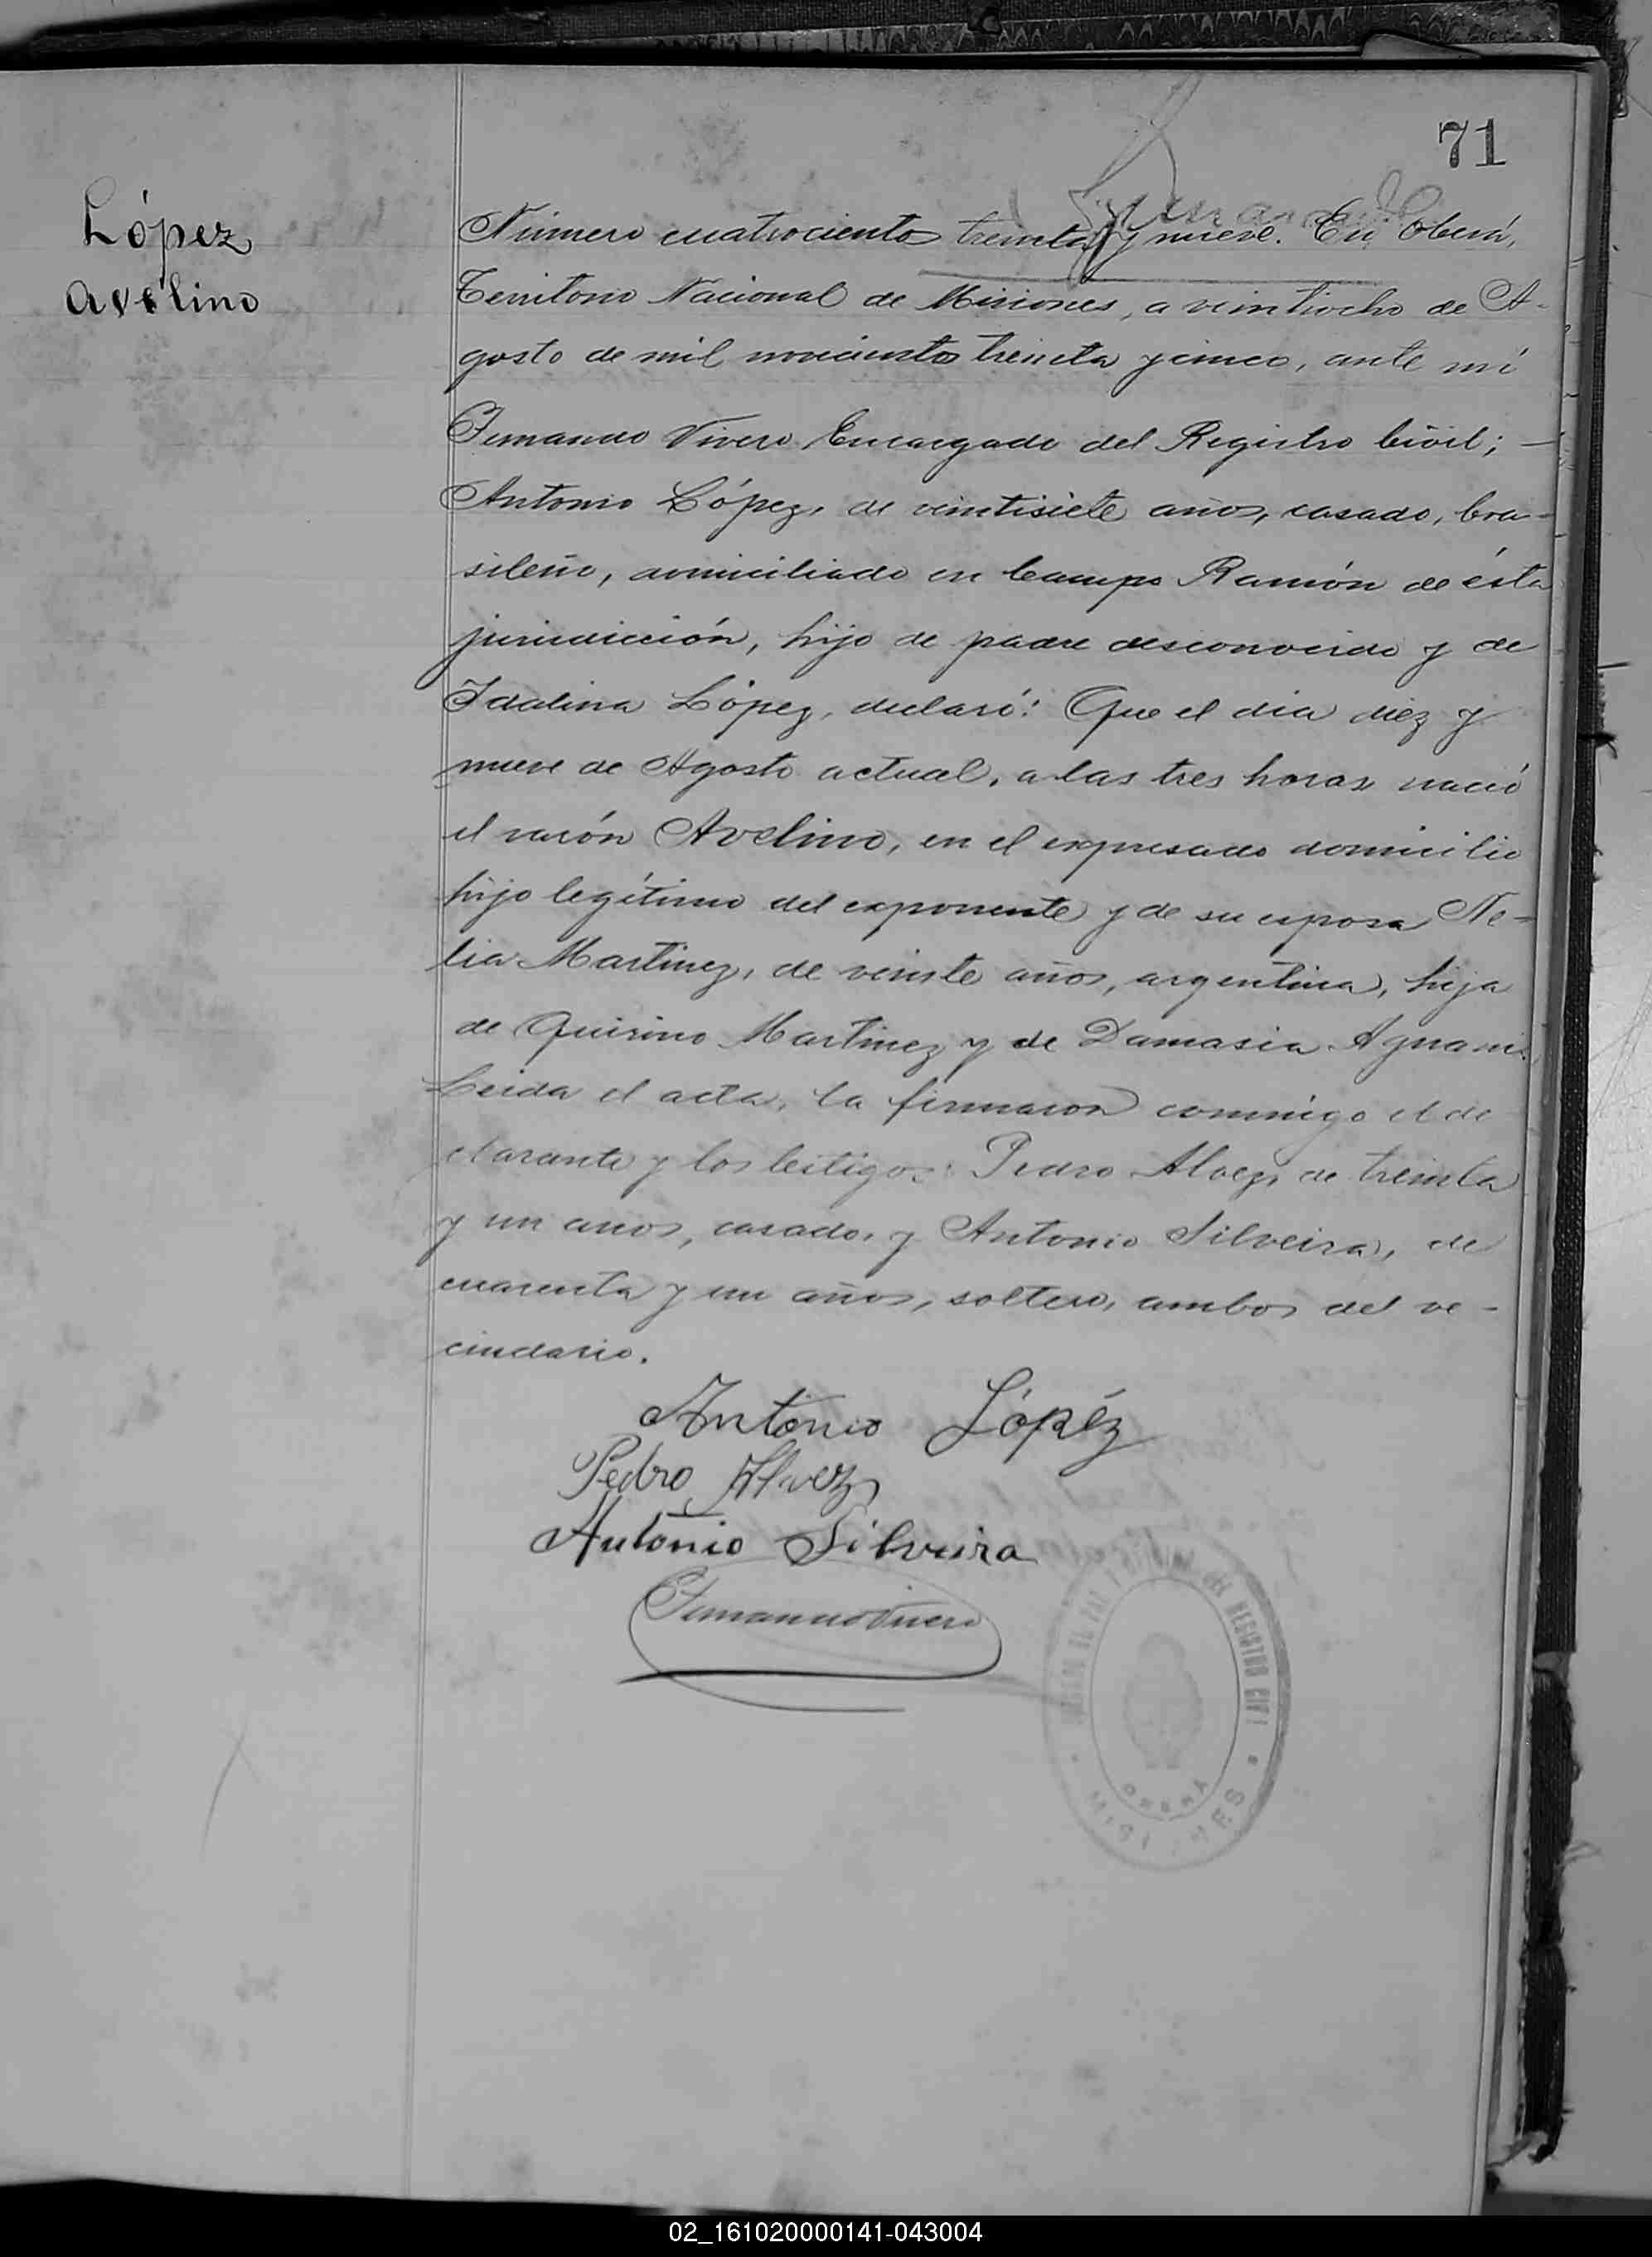 71
López
Avelino
Número cuatrocientos treinta y nueve. En Oberá,
Territorio Nacional de Misiones, a veintiocho de A-
gosto de mil novecientos treinta y cinco, ante mí
Fernando Vivero Encargado del Registro Civil; —
Antonio López, de veintisiete años, casado, bra-
sileño, domiciliado en Campo Ramón de ésta
jurisdicción, hijo de padre desconocido y de
Idalina López, declaró: Que el día diez y
nueve de Agosto actual, a las tres horas nació
el varón Avelino, en el expresado domicilio
hijo legítimo del exponente y de su esposa Ne-
lia Martinez, de veinte años, argentina, hija
de Quirino Martinez y de Damasia
Leida el acta, la firmaron conmigo el de
clarante y los testigos: Pedro Alvez, de treinta
y un años, casado, y Antonio Silveira, de
cuarenta y un años, soltero, ambos del ve-
cindario.
Antonio López
Pedro Alvez
Antonio Silveira
Fernando Vivero
REGISTRO CIVIL
OBERÁ
02_161020000141-043004